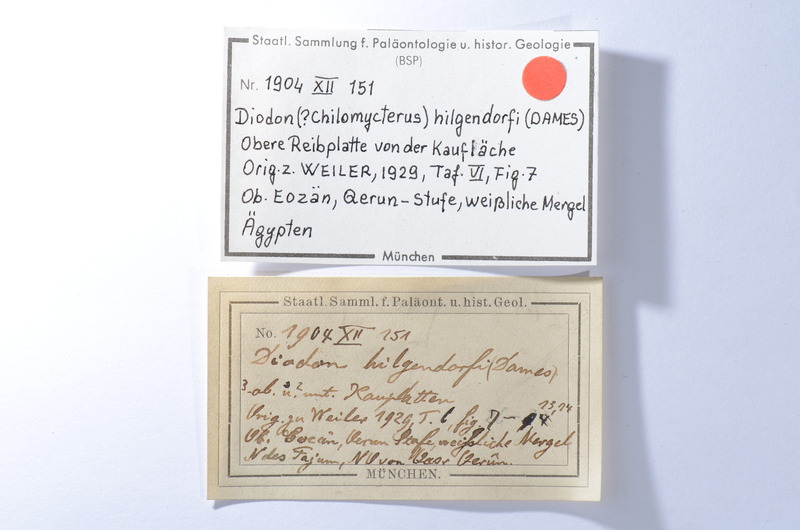 Staatl. Sammlung f. Paläontologie u. histor. Geologie
(BSP)
Nr. 1904 XII 151
Diodon (?Chilomycterus) hilgendorfi (DAMES)
Obere Reibplatte von der Kaufläche
Orig. z. WEILER, 1929, Taf. VI, Fig. 7
Ob. Eozän, Qerun-Stufe, weißliche Mergel
Ägypten
München
Staatl. Samml. f. Paläont. u. hist. Geol.
No. 1904 XII 151
Diodon hilgendorfi (Dames)
3 ob. u. 2 unt. Kauplatten
Orig. zu Weiler 1929, T. 6, fig. 7-
13,14
Ob. Eocän, Qerun Stufe, weißliche Mergel
N des Fajum, NO von Qasr Qerûn.
MÜNCHEN.